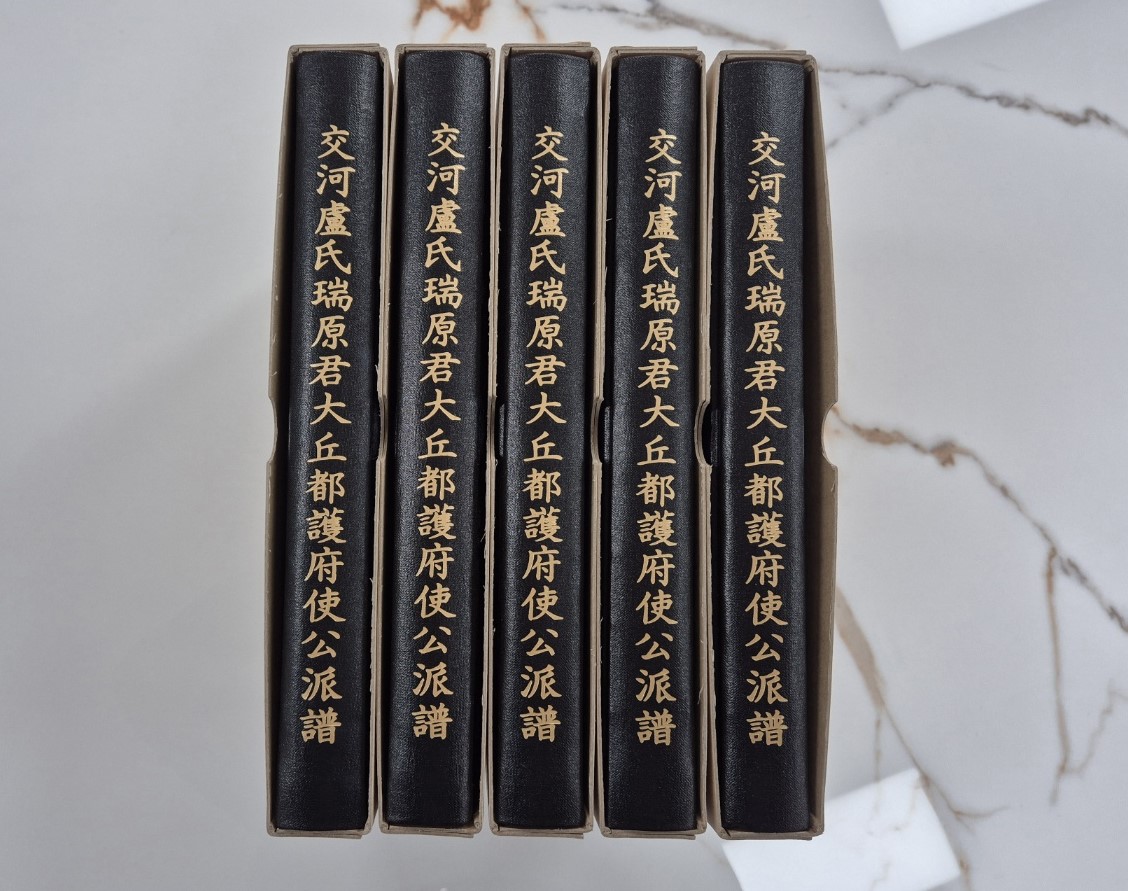 交河盧氏瑞原君大丘都護府使公派譜
交河盧氏瑞原君大丘都護府使公派譜
交河盧氏瑞原君大丘都護府使公派譜
交河盧氏瑞原君大丘都護府使公派譜
交河盧氏瑞原君大丘都護府使公派譜